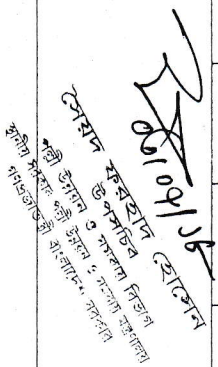 ০৩/০৭/১৮
সৈয়দ ফরহাদ হোসেন
উপসচিব
পল্লী উন্নয়ন ও সমবায় বিভাগ
স্থানীয় সরকার পল্লী উন্নয়ন ও সমবায় মন্ত্রণালয়
গণপ্রজাতন্ত্রী বাংলাদেশ সরকার